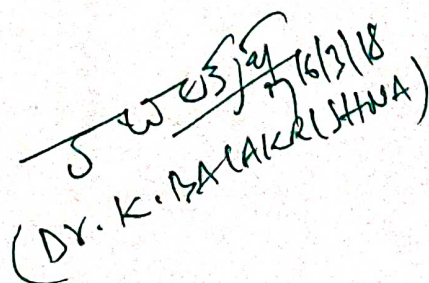 16/3/18
(Dr. K. BALAKRISHNA)